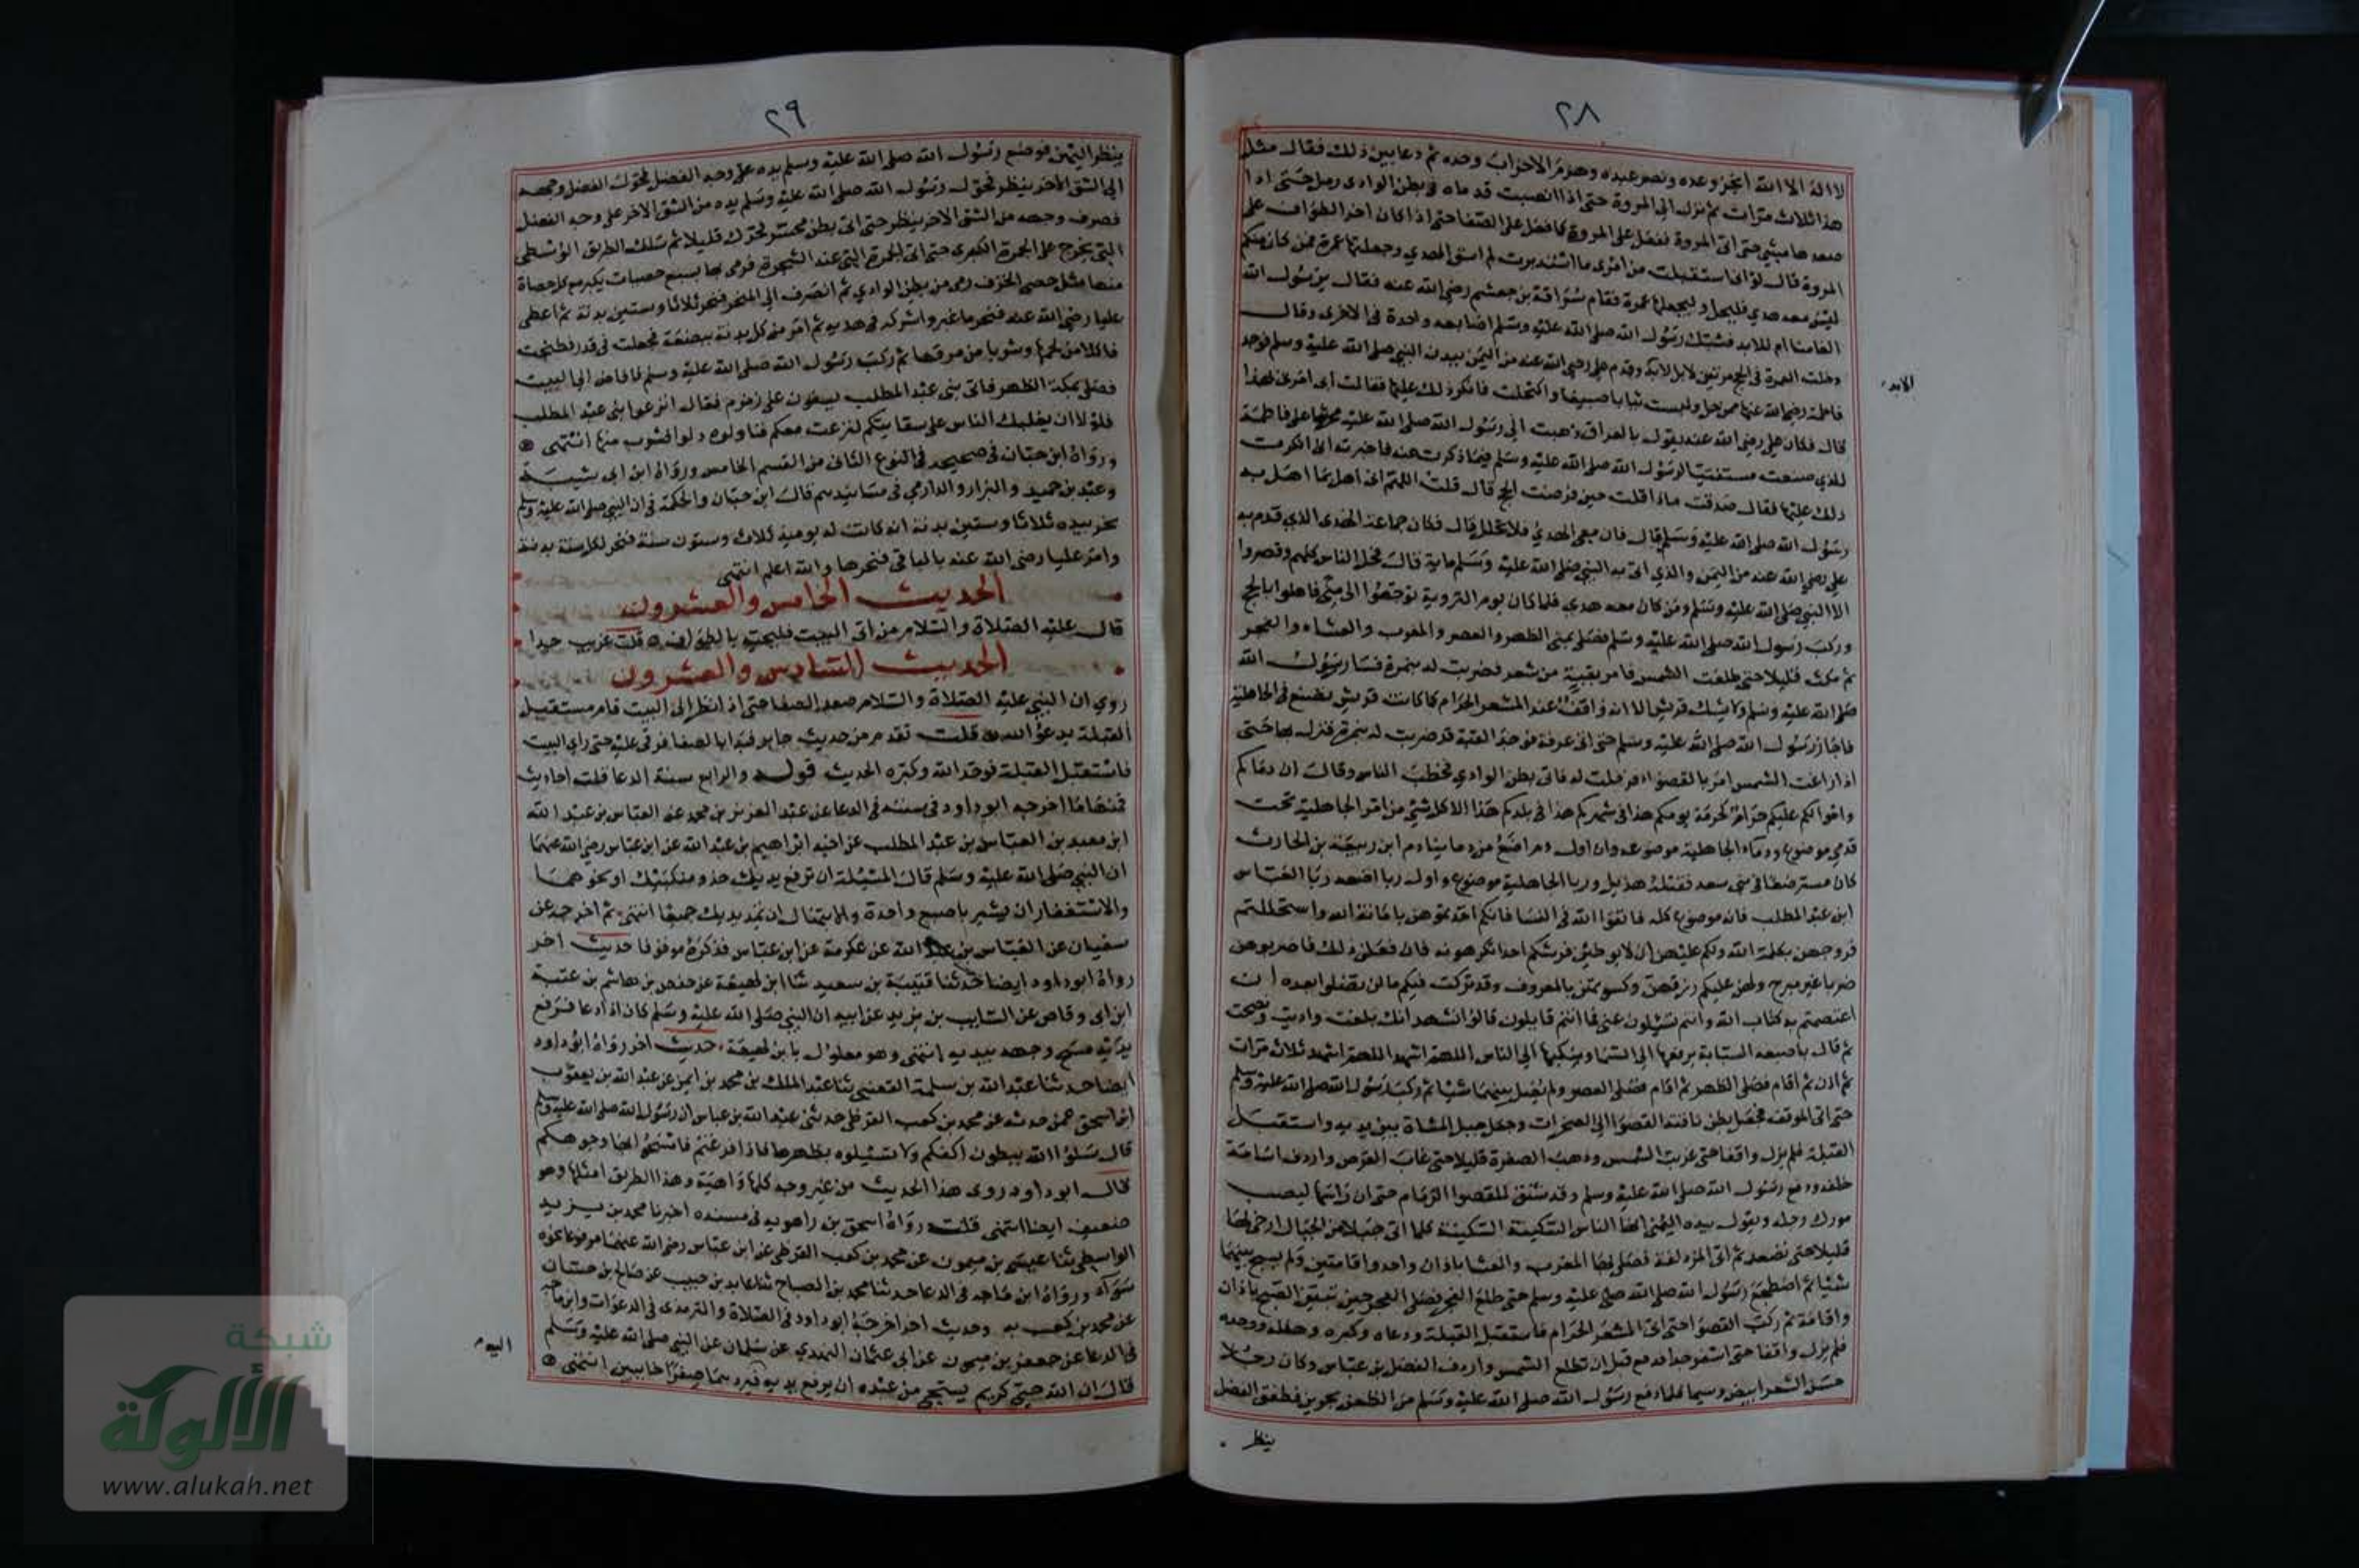 ٢٨
لا اله الا الله انجز وعده ونصر عبده وهزم الاحزاب وحده ثم دعا بين ذلك فقال مثل
هذا ثلاث مرات ثم نزل الى المروة حتى اذا انصبت قدماه في بطن الوادى رمل حتى اذا
صعدها مشي حتى اتى المروة ففعل على المروة كما فعل على الصفا حتى اذا كان اخر الطواف على
المروة قال لو انى استقبلت من امرى ما استدبرت لم اسق الهدي وجعلتها عمرة فمن كان منكم
ليس معه هدي فليحل وليجعلها عمرة فقام سراقة بن جعشم رضي الله عنه فقال يرسول الله
العامنا ام للابد فشبك رسول الله صلى الله عليه وسلم اصابعه واحدة في الاخرى وقال
دخلت العمرة في الحج مرتين لا بل لابد وقدم على رضي الله عنه من اليمن ببدن النبي صلى الله عليه وسلم فوجد
الابد
فاطمة رضي الله عنها ممن حل ولبست ثيابا صبيغا واكتحلت فانكر ذلك عليها فقالت ابى امرنى بهذا
قال فكان على رضى الله عنه يقول بالعراق ذهبت الى رسول الله صلى الله عليه محرشا على فاطمة
للذي صنعت مستفتيا لرسول الله صلى الله عليه وسلم فيما ذكرت عنه فاخبرته انى انكرت
ذلك عليها فقال صدقت ماذا قلت حين فرضت الحج قال قلت اللهم انى اهل بما اهل به
رسول الله صلى الله عليه وسلم قال فان معى الهدي فلا تحلل قال فكان جماعة الهدى الذي قدم به
على رضي الله عنه من اليمن والذي اتى به النبي صلى الله عليه وسلم ماية قال فحل الناس كلهم وقصروا
الا النبي صلى الله عليه وسلم ومن كان معه هدي فلما كان يوم التروية توجهوا الى منى فاهلوا بالحج
وركب رسول الله صلى الله عليه وسلم فصلى بمنى الظهر والعصر والمغرب والعشاء والفجر
ثم مكث قليلا حتى طلعت الشمس فامر بقبة من شعر فضربت له بنمرة فسار رسول الله
صلى الله عليه وسلم ولا يشك قريش الا انه واقف عند المشعر الحرام كما كانت قريش يصنع في الجاهلية
فاجاز رسول الله صلى الله عليه وسلم حتى اتى عرفة فوجد القبة قد ضربت له بنمرة فنزل بها حتى
اذا زاغت الشمس امر بالقصواء فرحلت له فاتى بطن الوادي فخطب الناس وقال ان دماكم
واموالكم عليكم حرام كحرمة يومكم هذا فى شهركم هذا في بلدكم هذا الا كل شئ من امر الجاهلية تحت
قدمي موضوع ودماء الجاهلية موضوعه وان اول دم اضع من دماينا دم ابن ربيعة بن الحارث
كان مسترضعا فى بنى سعد فقتلته هذيل وربا الجاهلية موضوع واول ربا اضعه ربا العباس
ابن عبد المطلب فانه موضوع كله فاتقوا الله فى النسا فانكم اخذتموهن بامانة الله واستحللتم
فروجهن بكلمة الله ولكم عليهن ان لا يوطين فرشكم احدا تكرهونه فان فعلن ذلك فاضربوهن
ضربا غير مبرح ولهن عليكم رزقهن وكسوتهن بالمعروف وقد تركت فيكم ما لن تضلوا بعده ان
اعتصمتم به كتاب الله وانتم تسئلون عنى فما انتم قايلون قالوا نشهد انك بلغت واديت ونصحت
ثم قال باصبعه السبابة يرفعها الى السما وينكبها الى الناس اللهم اشهد اللهم اشهد ثلاث مرات
ثم اذن ثم اقام فصلى الظهر ثم اقام فصلى العصر ولم يصل بينهما شيا ثم ركب رسول الله صلى الله عليه وسلم
حتى اتى الموقف فجعل بطن ناقته القصوا الى الصخرات وجعل جبل المشاة بين يديه واستقبل
القبلة فلم يزل واقفا حتى غربت الشمس وذهب الصفرة قليلا حتى غاب القرص واردف اسامة
خلفه ودفع رسول الله صلى الله عليه وسلم وقد شنق للقصوا الزمام حتى ان راسها ليصيب
مورك رحله ويقول بيده اليمنى ايها الناس السكينة السكينة كلما اتى جبلا من الجبال ارخى لها
قليلا حتى تصعد ثم اتى المزدلفة فصلى بها المغرب والعشا باذان واحد واقامتين ولم يسبح بينهما
شيئا ثم اضطجع رسول الله صلى الله صلى عليه وسلم حتى طلع الفجر فصلى الفجر حين تبين الصبح باذان
واقامة ثم ركب القصوا حتى اتى المشعر الحرام فاستقبل القبلة ودعاه وكبره وهلله ووحده
فلم يزل واقفا حتى اسفر جدا فدفع قبل ان تطلع الشمس واردف الفضل بن عباس وكان رجلا
حسن الشعر ابيض وسيما فلما دفع رسول الله صلى الله عليه وسلم مر الظعن يجرين فطفق الفضل
ينظر
٢٩
ينظر اليهن فوضع رسول الله صلى الله عليه وسلم يده على وجه الفضل فحول الفضل وجهه
الى الشق الاخر ينظر فحول رسول الله صلى الله عليه وسلم يده من الشق الاخر على وجه الفضل
فصرف وجهه من الشق الاخر ينظر حتى اتى بطن محسر فحرك قليلا ثم سلك الطريق الوسطى
التى يخرج على الجمرة الكبرى حتى اتى الجمرة التى عند الشجرة فرمى بها بسبع حصيات يكبر مع كل حصاة
منها مثل حصى الخذف رمى من بطن الوادي ثم انصرف الى المنحر فنحر ثلاثا وستين بدنة ثم اعطى
عليا رضى الله عنه فنحر ما غبر واشركه فى هديه ثم امر من كل بدنة ببضعة فجعلت فى قدر فطبخت
فاكلا من لحمها وشربا من مرقها ثم ركب رسول الله صلى الله عليه وسلم فافاض الى البيت
فصلى بمكة الظهر فاتى بنى عبد المطلب يسقون على زمزم فقال انزعوا بنى عبد المطلب
فلولا ان يغلبك الناس على سقايتكم لنزعت معكم فناولوه دلوا فشرب منها انتهى
ورواه ابن حبان فى صحيحه فى النوع الثانى من القسم الخامس ورواه ابن ابى شيبة
وعبد بن حميد والبزار والدارمي فى مسانيدهم قال ابن حبان والحكمة فى ان النبي صلى الله عليه وسلم
نحر بيده ثلاثا وستين بدنة انه كانت له يوميذ ثلاث وستون سنة فنحر لكل سنة بدنة
وامر عليا رضى الله عنه بالباقى فنحرها والله اعلم انتهى
الحديث الخامس والعشرون
قال عليه الصلاة والسلام من اتى البيت فليحيه بالطواف قلت غريب جدا
الحديث السادس والعشرون
روي ان النبي عليه الصلاة والسلام صعد الصفا حتى اذ انظر الى البيت قام مستقبل
القبلة يدعو الله قلت تقدم من حديث جابر فبدا بالصفا فرقى عليه حتى راى البيت
فاستقبل القبلة فوحد الله وكبره الحديث قوله والرابع سنة الدعا قلت احاديث
فمنها ما اخرجه ابو داود فى سننه فى الدعا عن عبد العزيز بن محمد عن العباس بن عبد الله
ابن معبد بن العباس بن عبد المطلب عن اخيه ابراهيم بن عبد الله عن ابن عباس رضي الله عنهما
ان النبي صلى الله عليه وسلم قال المسئلة ان ترفع يديك حذو منكبيك او نحوهما
والاستغفار ان تشير باصبع واحدة والابتهال ان تمد يديك جميعا انتهى ثم اخرجه عن
سفيان عن العباس بن عبد الله عن عكرمة عن ابن عباس فذكره موقوفا حديث اخر
رواه ابو داود ايضا حدثنا قتيبة بن سعيد ثنا ابن لهيعة عن حفص بن هاشم بن عتبة
ابن ابى وقاص عن السايب بن يزيد عن ابيه ان النبي صلى الله عليه وسلم كان اذا دعا فرفع
يديه مسح وجهه بيديه انتهى وهو معلول بابن لهيعة حديث اخر رواه ابو داود
ايضا حدثنا عبد الله بن سلمة القعنبى ثنا عبد الملك بن محمد بن ايمن عن عبد الله بن يعقوب
ابن اسحق عمن حدثه عن محمد بن كعب القرظى حدثنى عبد الله بن عباس ان رسول الله صلى الله عليه وسلم
قال سلوا الله ببطون اكفكم ولا تسئلوه بظهرها فاذا فرغتم فامسحوا بها وجوهكم
قال ابو داود روى هذا الحديث من غير وجه كلها واهية وهذا الطريق امثلها وهو
ضعيف ايضا انتهى قلت رواه اسحق بن راهويه فى مسنده اخبرنا محمد بن يزيد
الواسطى ثنا عيسى بن ميمون عن محمد بن كعب القرظى عن ابن عباس رضي الله عنهما مرفوعا نحوه
سواء ورواه ابن ماجه فى الدعا حدثنا محمد بن الصباح ثنا عايد بن حبيب عن صالح بن حسان
عن محمد بن كعب به وحديث اخر اخرجه ابو داود فى الصلاة والترمذى فى الدعوات وابن ماجه
فى الدعا عن جعفر بن ميمون عن ابى عثمان النهدي عن سلمان عن النبي صلى الله عليه وسلم
قال ان الله حيي كريم يستحي من عبده ان يرفع يديه فيردهما صفرا خايبين انتهى
اليوم
شبكة
الألوكة
www.alukah.net